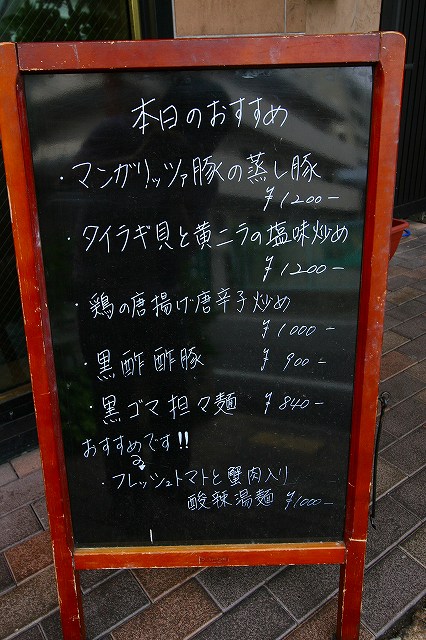 本日のおすすめ
・マンガリッツァ豚の蒸し豚
¥1200-
・タイラギ貝と黄ニラの塩味炒め
¥1200-
・鶏の唐揚げ唐辛子炒め
¥1000-
・黒酢酢豚 ¥900-
・黒ゴマ担々麺 ¥840-
おすすめです!!
・フレッシュトマトと蟹肉入り
酸辣湯麺 ¥1000-